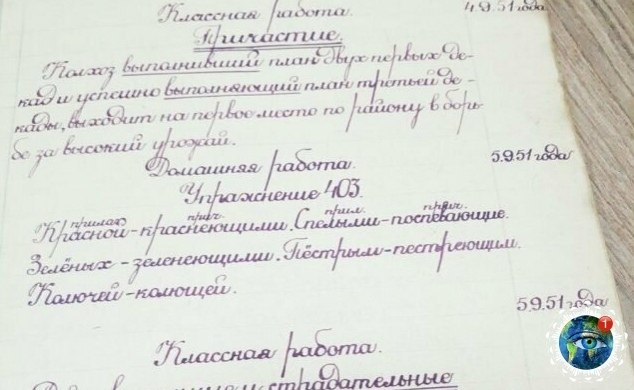 Классная работа. 4.9.51 года
Причастие.
Колхоз выполнивший план двух первых де-
кад и успешно выполняющий план третьей де-
кады, выходит на первое место по району в борь-
бе за высокий урожай.
Домашняя работа. 5.9.51 года
Упражнение 403.
прилаг. прич. прил. прич.
Красной-краснеющими. Спелыми-поспевающие.
Зелёных-зеленеющими. Пёстрым-пестреющим.
Колючей-колющей.
5.9.51 года
Классная работа.
страдательные
1